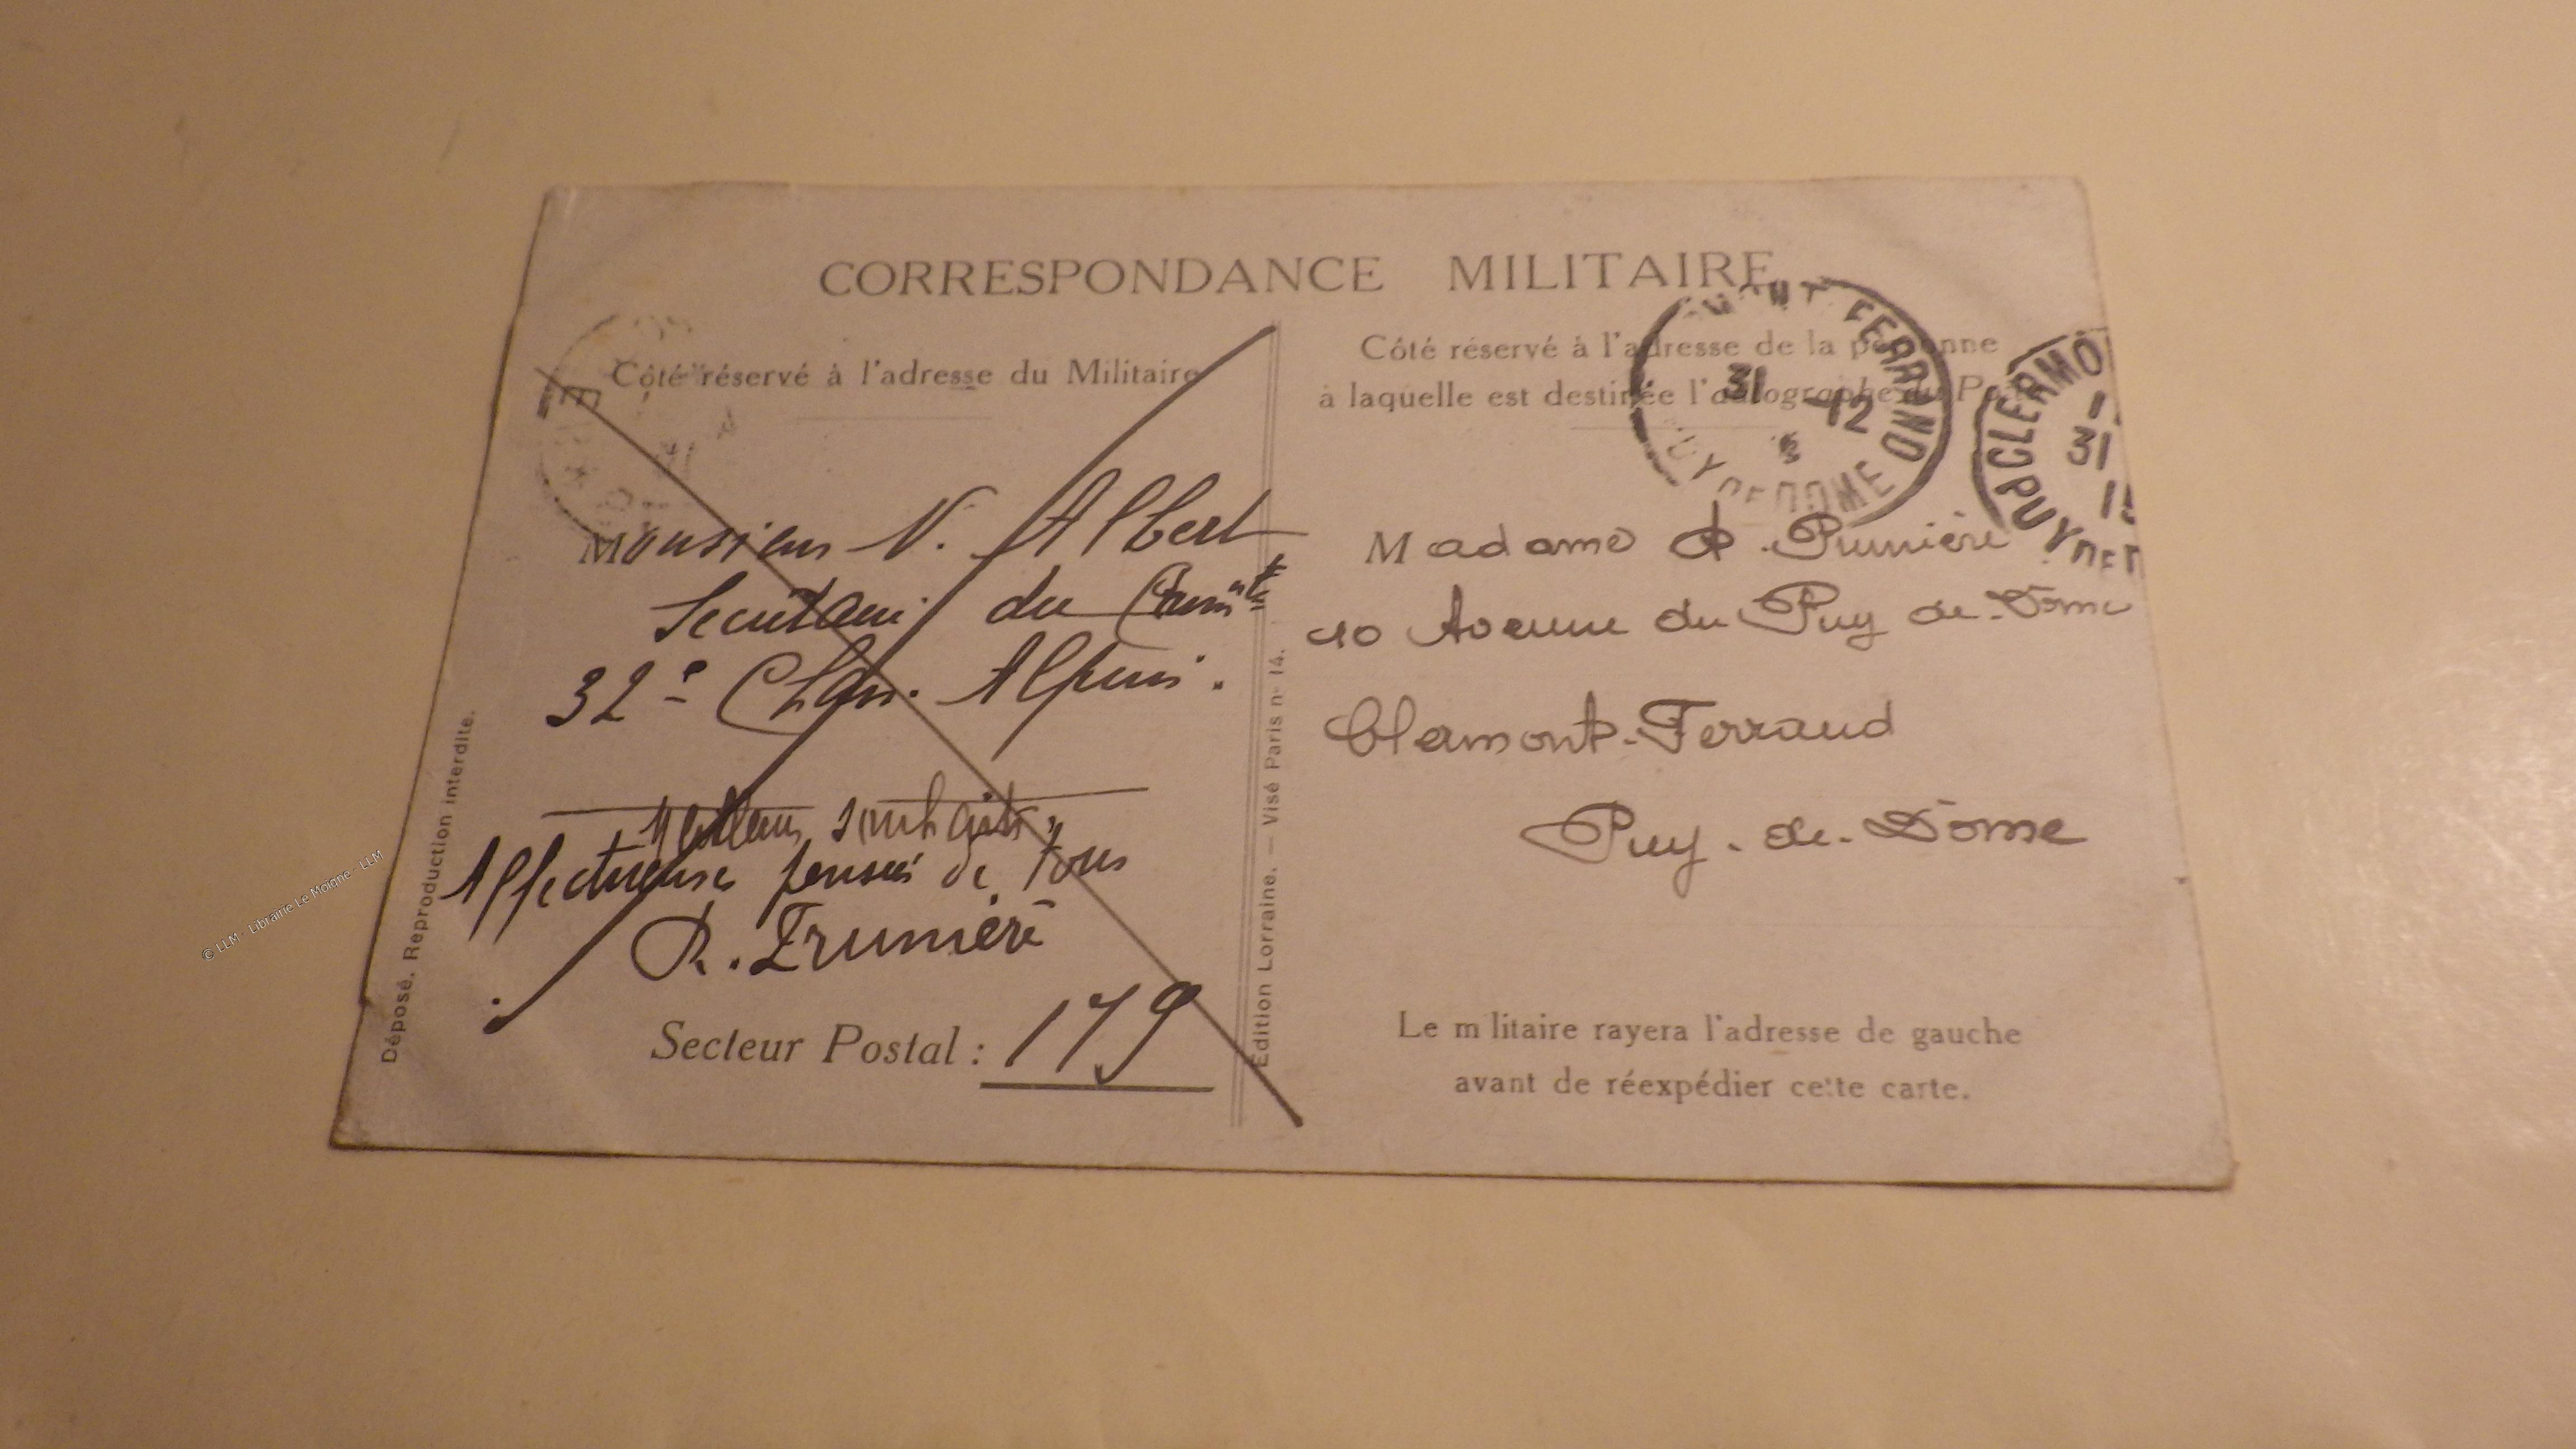 CORRESPONDANCE MILITAIRE
Côté réservé à l'adresse du Militaire
Monsieur V. Albert
Secrétaire du
32e Chas. Alpins.
Meilleurs souhaits,
Affectueuses pensées de tous
Secteur Postal : 179
Déposé. Reproduction interdite.
Edition Lorraine. — Visé Paris no 14.
Côté réservé à l'adresse de la personne
à laquelle est destinée l'autographe du
Madame
10 Avenue du Puy de-Dôme
Clermont-Ferrand
Puy-de-Dôme
Le militaire rayera l'adresse de gauche
avant de réexpédier cette carte.
MONT FERRAND
31 -12
PUY DE DOME
CLERMO
31
PUY DE D
© LLM - Librairie Le Moigne - LLM